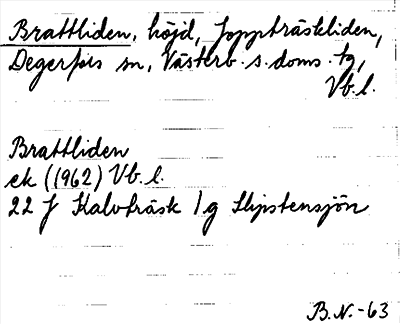 Brattliden, höjd, Joppträskliden,
Degerfors sn, Västerb. s. doms. tg,
Vb. l.
Brattliden
ek (1962) Vb. l.
22 J Kalvträsk 1 g Slipstensjön
B.N.-63